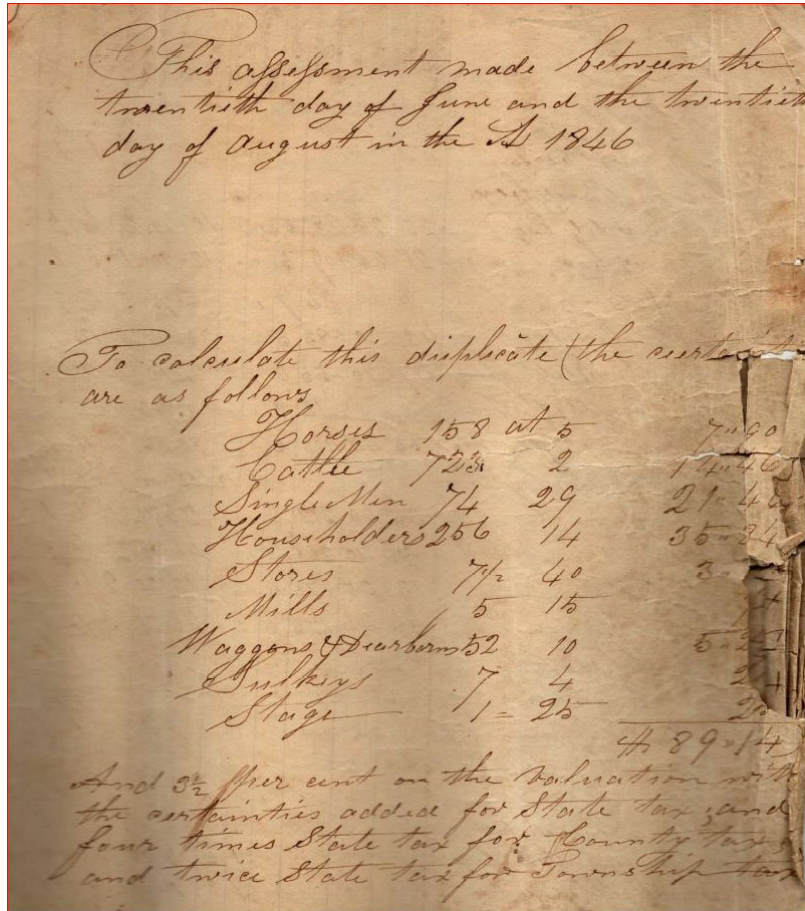 This assessment made between the
twentieth day of June and the twentieth
day of august in the A 1846
To calculate this duplicate (the
are as follows
Horses 158 at 5 7"90
Cattle 723 2 14"46
Single Men 74 29 21"46
Householders 256 14 35"84
Stores 7 1/2 40 3"
Mills 5 15
Waggons & Dearborns 52 10 5"
Sulkeys 7 4
Stage 1 = 25
$ 89"14
And 3 1/2 per cent on the valuation with
the certainties added for State tax, and
four times State tax for County tax,
and twice State tax for Township tax